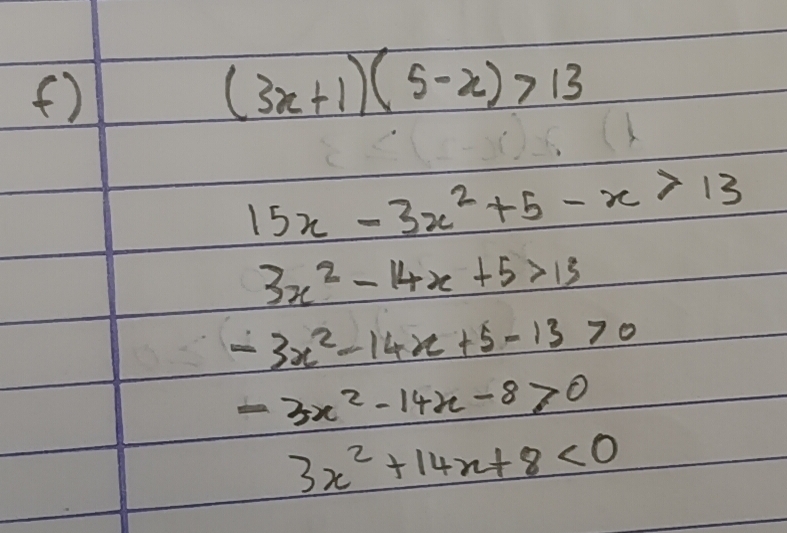 f) (3x+1)(5-x)>13
15x - 3x² + 5 - x > 13
3x² - 14x + 5 > 13
- 3x² - 14x + 5 - 13 > 0
- 3x² - 14x - 8 > 0
3x² + 14x + 8 < 0